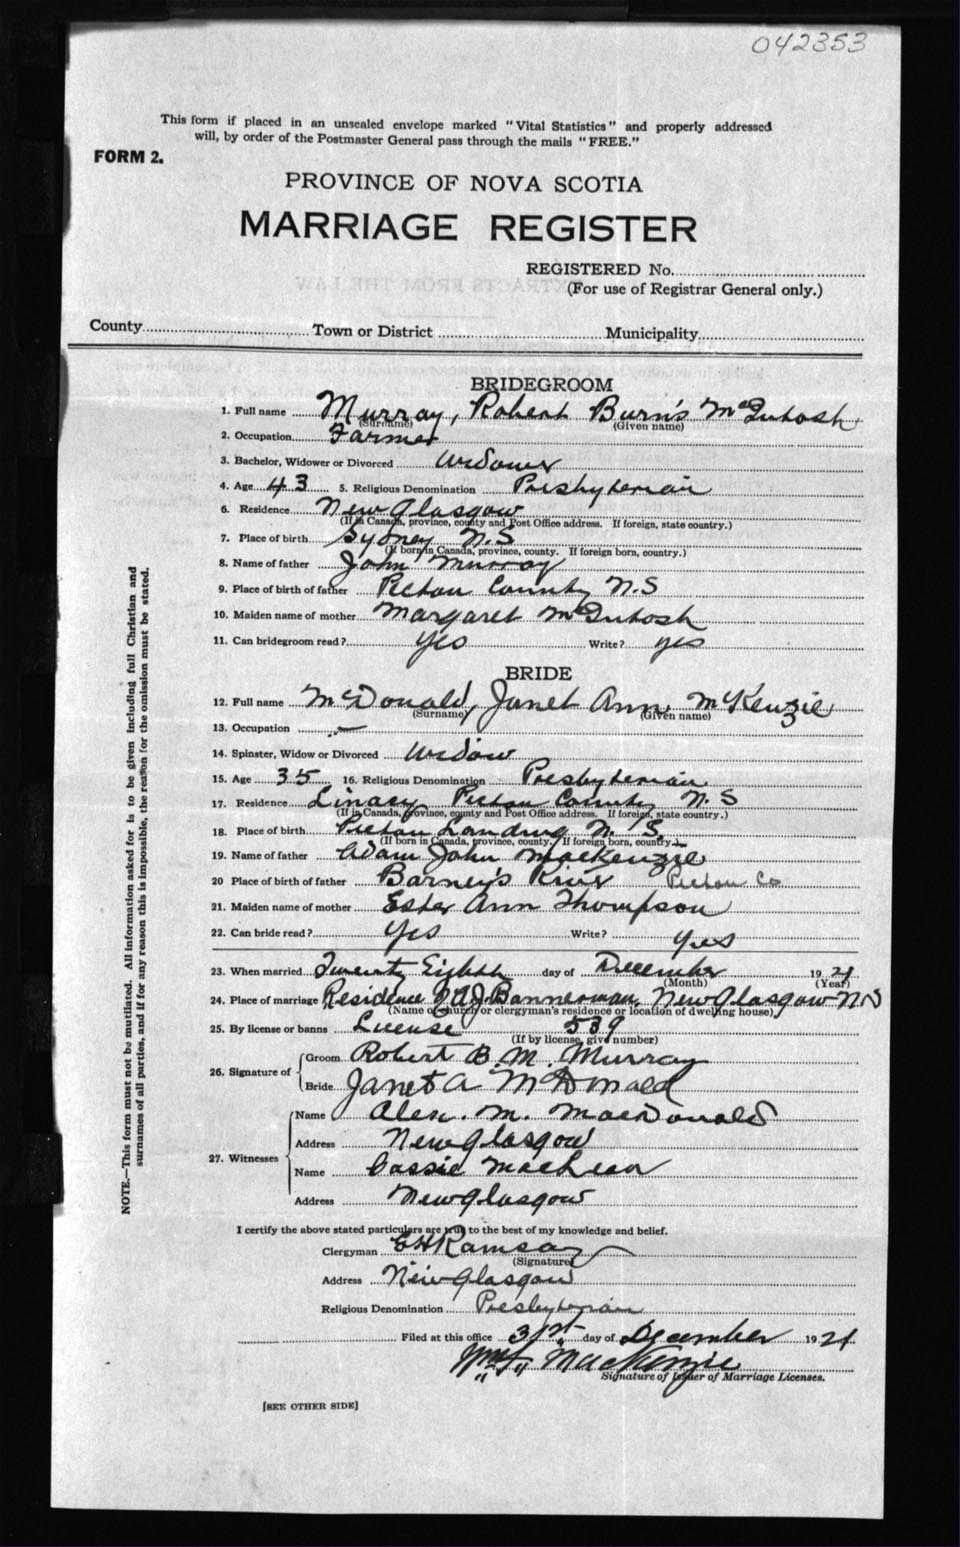 042353
This form if placed in an unsealed envelope marked "Vital Statistics" and properly addressed
will, by order of the Postmaster General pass through the mails "FREE."
FORM 2.
PROVINCE OF NOVA SCOTIA
MARRIAGE REGISTER
REGISTERED No.
(For use of Registrar General only.)
County Town or District Municipality
BRIDEGROOM
1. Full name Murray, Robert Burns McIntosh
(Surname) (Given name)
2. Occupation Farmer
3. Bachelor, Widower or Divorced Widower
4. Age 43 5. Religious Denomination Presbyterian
6. Residence New Glasgow
(If in Canada, province, county and Post Office address. If foreign, state country.)
7. Place of birth Sydney N.S
(If born in Canada, province, county. If foreign born, country.)
8. Name of father John Murray
9. Place of birth of father Pictou County N.S
10. Maiden name of mother Margaret McIntosh
11. Can bridegroom read? Yes Write? yes
BRIDE
12. Full name McDonald, Janet Ann McKenzie
(Surname) (Given name)
13. Occupation —
14. Spinster, Widow or Divorced Widow
15. Age 35 16. Religious Denomination Presbyterian
17. Residence Linacy Pictou County N.S
(If in Canada, province, county and Post Office address. If foreign, state country.)
18. Place of birth Pictou Landing N.S.
(If born in Canada, province, county. If foreign born, country.)
19. Name of father Adam John MacKenzie
20 Place of birth of father Barney's River Pictou Co
21. Maiden name of mother Ester Ann Thompson
22. Can bride read? Yes Write? Yes
23. When married Twenty Eighth day of December 1921
(Month) (Year)
24. Place of marriage Residence A J Bannerman, New Glasgow N S
(Name of church or clergyman's residence or location of dwelling house)
25. By license or banns License 539
(If by license, give number)
26. Signature of Groom Robert B. M. Murray
Bride Janet A McDonald
27. Witnesses Name Alex. M. MacDonald
Address New Glasgow
Name Cassie MacLean
Address New Glasgow
I certify the above stated particulars are true to the best of my knowledge and belief.
Clergyman E H Ramsay
(Signature)
Address New Glasgow
Religious Denomination Presbyterian
Filed at this office 31st day of December 1921
MacKenzie
Signature of Issuer of Marriage Licenses.
[SEE OTHER SIDE]
NOTE.—This form must not be mutilated. All information asked for is to be given including full Christian and
surnames of all parties, and if for any reason this is impossible, the reason for the omission must be stated.